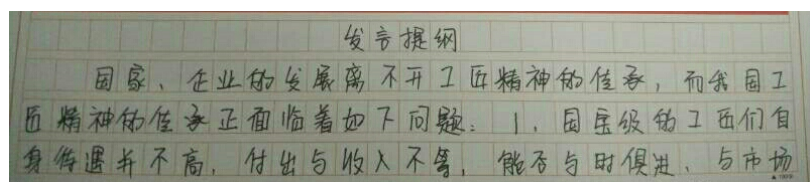 发言提纲
国家、企业的发展离不开工匠精神的传承，而我国工
匠精神的传承正面临着如下问题：1，国宝级的工匠们自
身待遇并不高，付出与收入不等，能否与时俱进、与市场